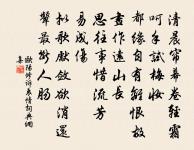 清晨帘幕卷輕霜
呵手試梅妝
都緣自有離恨故
畫作遠山長
思往事惜流芳
易成傷
擬歌先斂欲笑還
顰最斷人腸